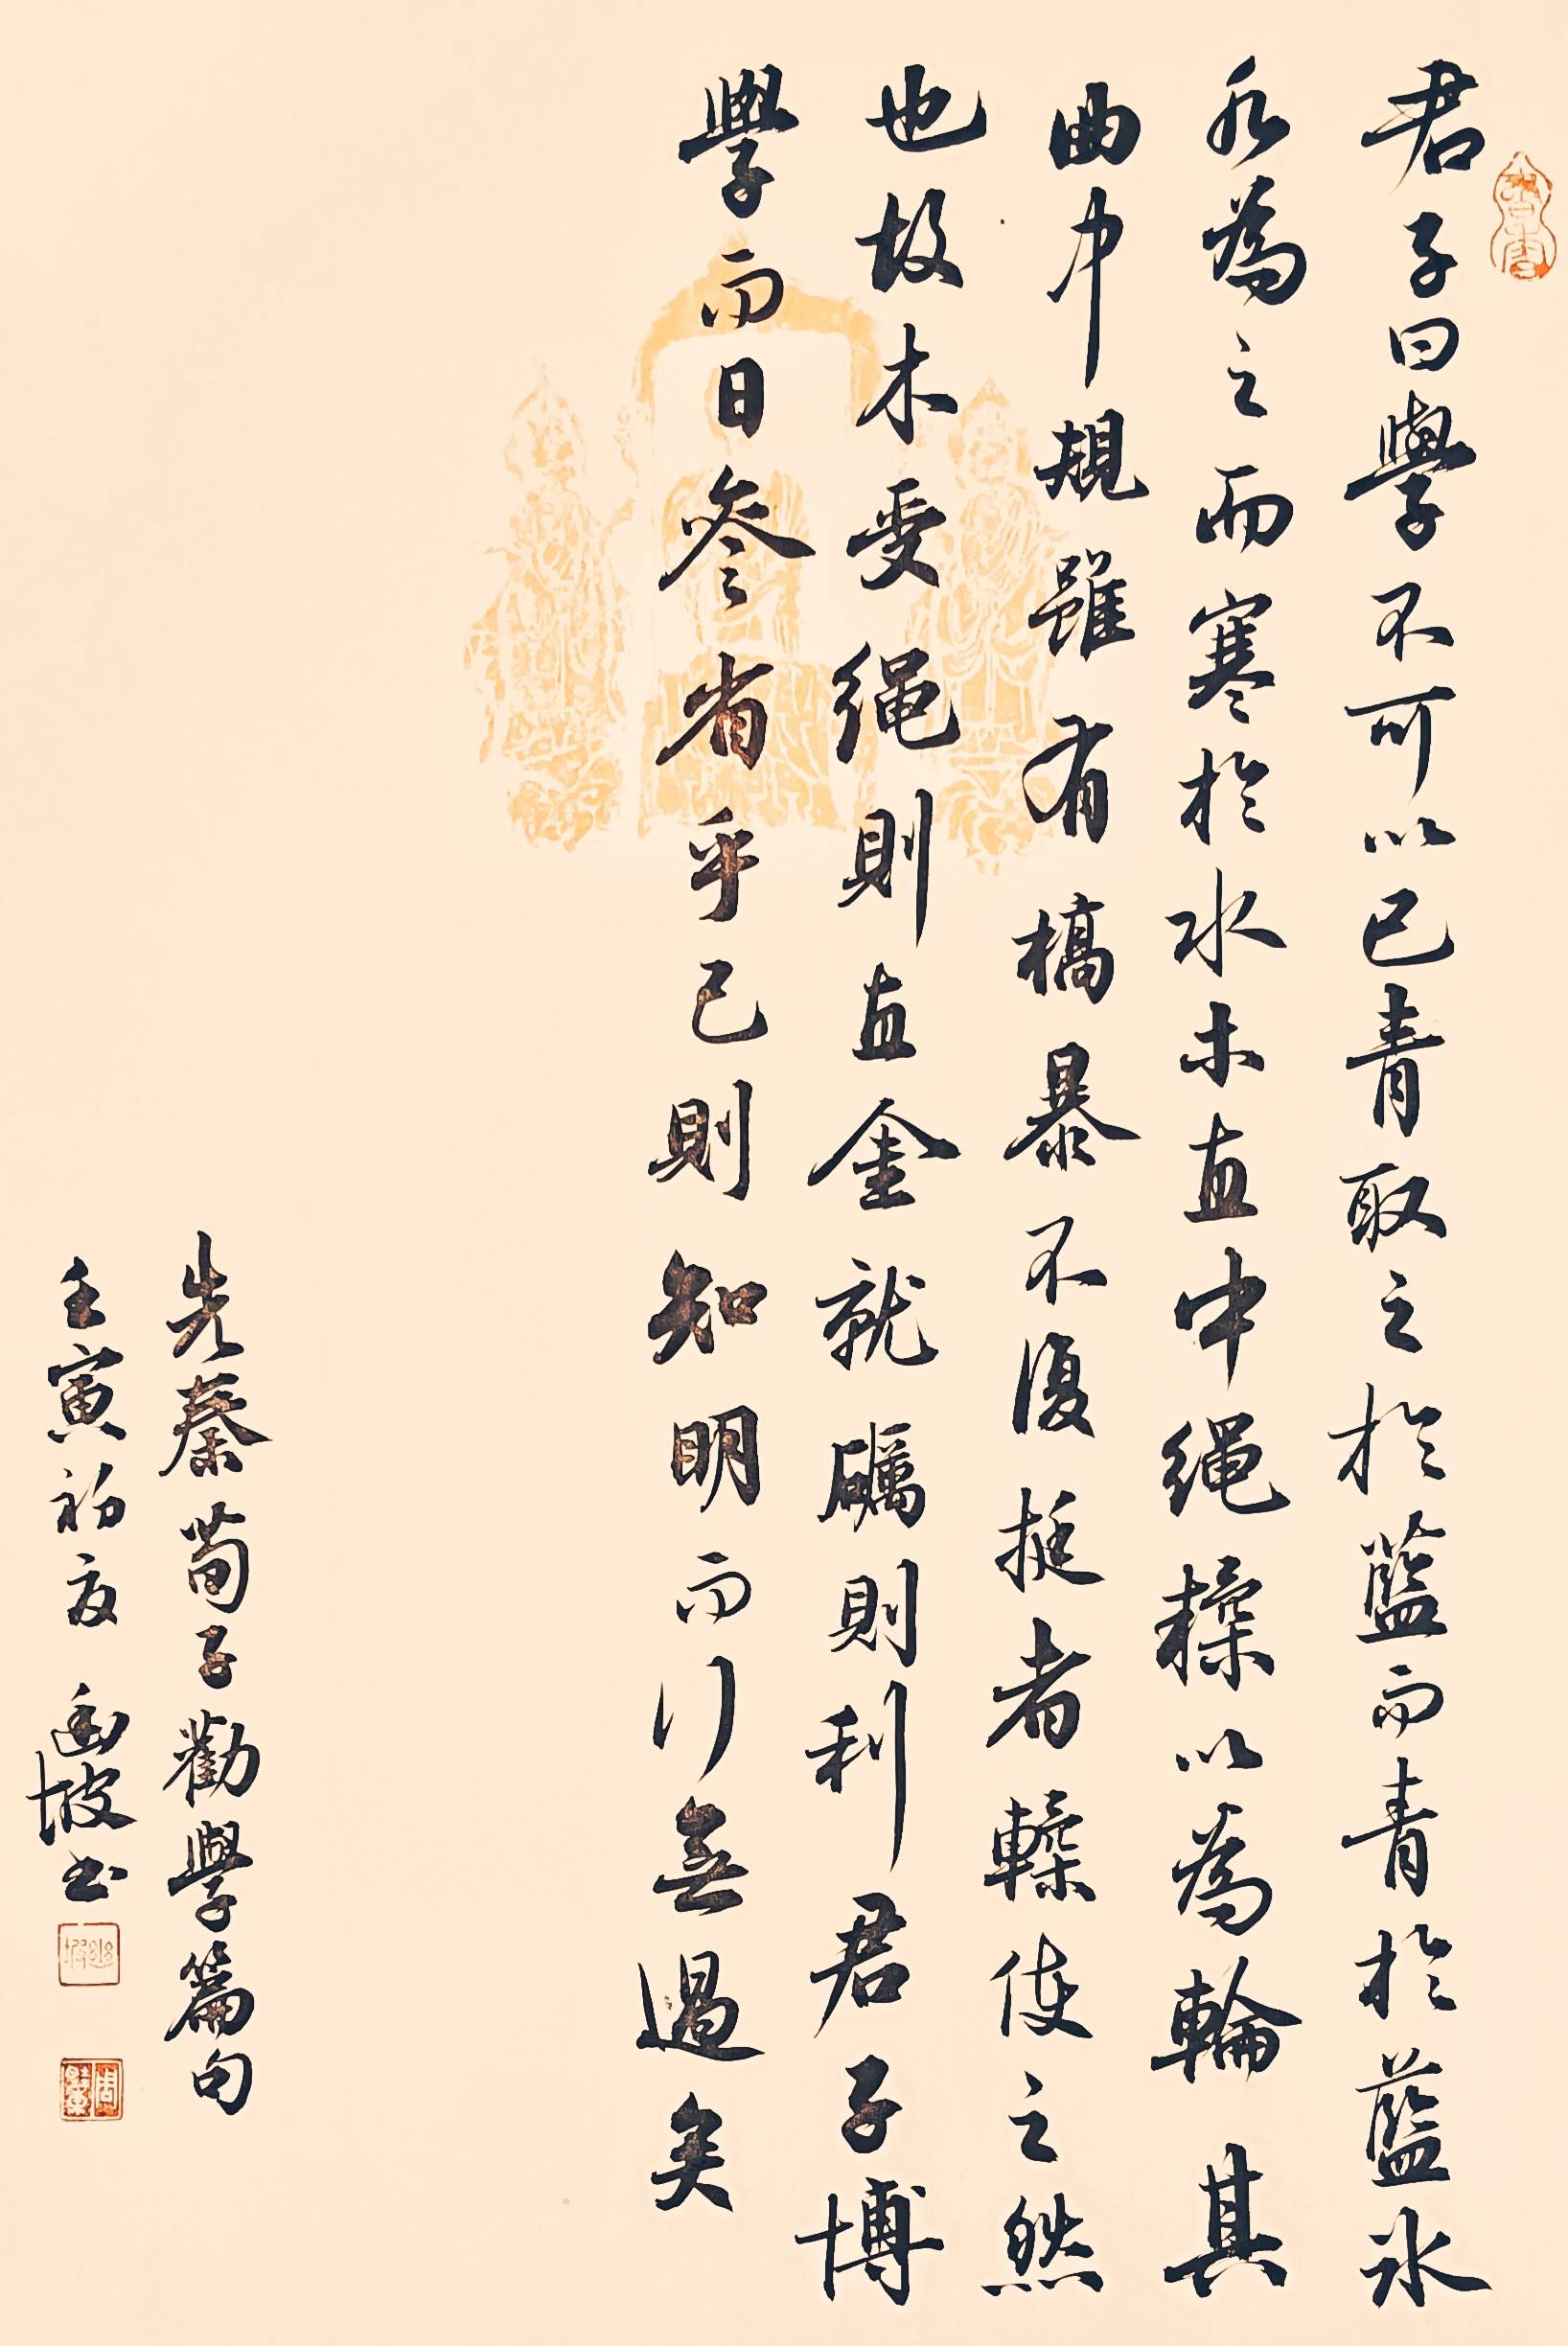 君子曰學不可以已青取之於藍而青於藍冰
水為之而寒於水木直中繩輮以為輪其
曲中規雖有槁暴不復挺者輮使之然
也故木受繩則直金就礪則利君子博
學而日參省乎己則知明而行無過矣
先秦荀子勸學篇句
壬寅初夏 幽坡书
幽坡